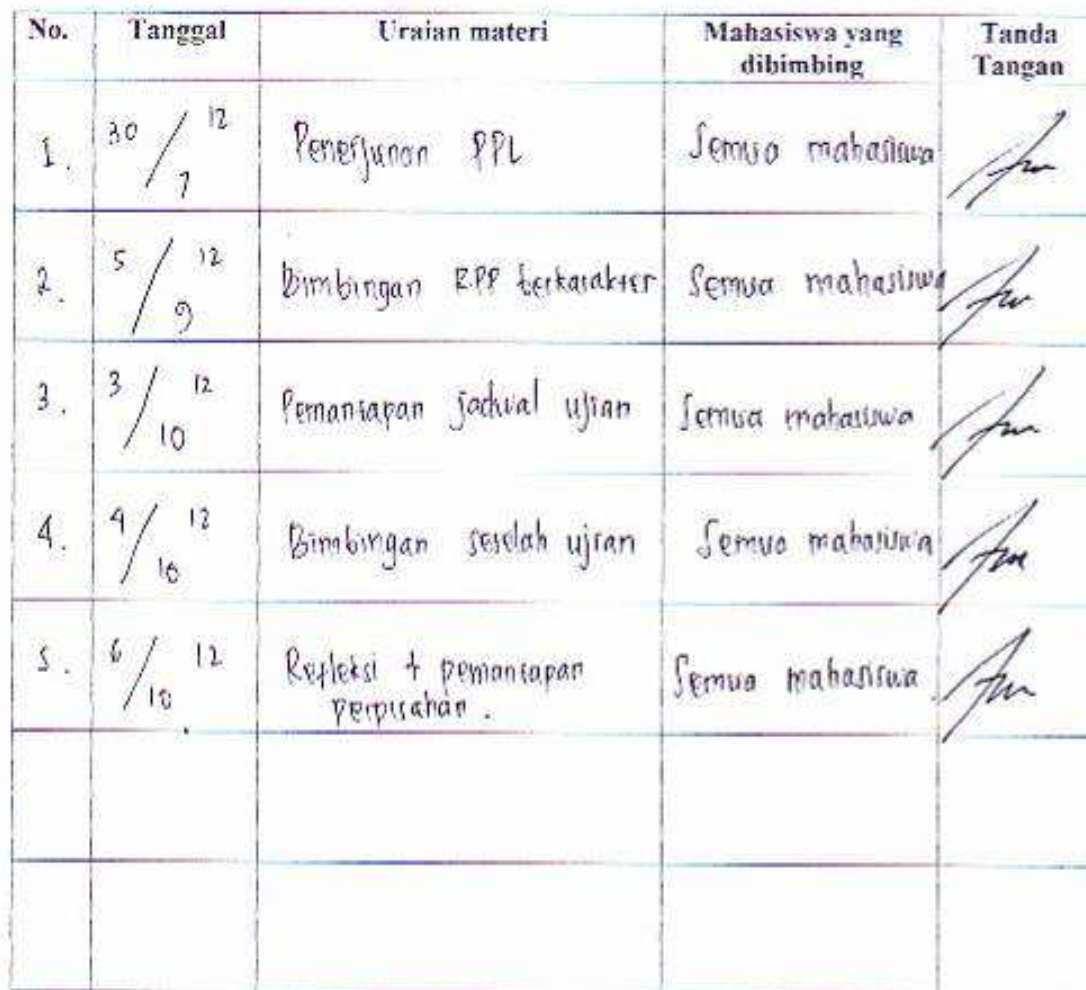 No. Tanggal Uraian materi Mahasiswa yang dibimbing Tanda Tangan
1. 30/7 12 Penerjunan PPL Semua mahasiswa
2. 5/9 12 Bimbingan RPP berkarakter Semua mahasiswa
3. 3/10 12 Pemantapan jadwal ujian Semua mahasiswa
4. 4/10 12 Bimbingan setelah ujian Semua mahasiswa
5. 6/10 12 Refleksi + pemantapan
perpisahan. Semua mahasiswa